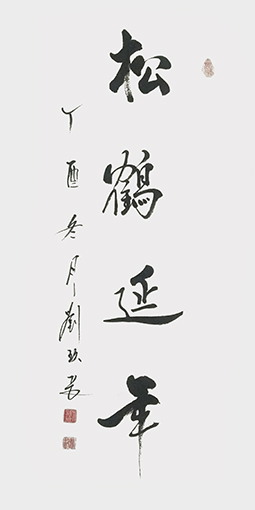 松鶴延年
丁酉冬月劉